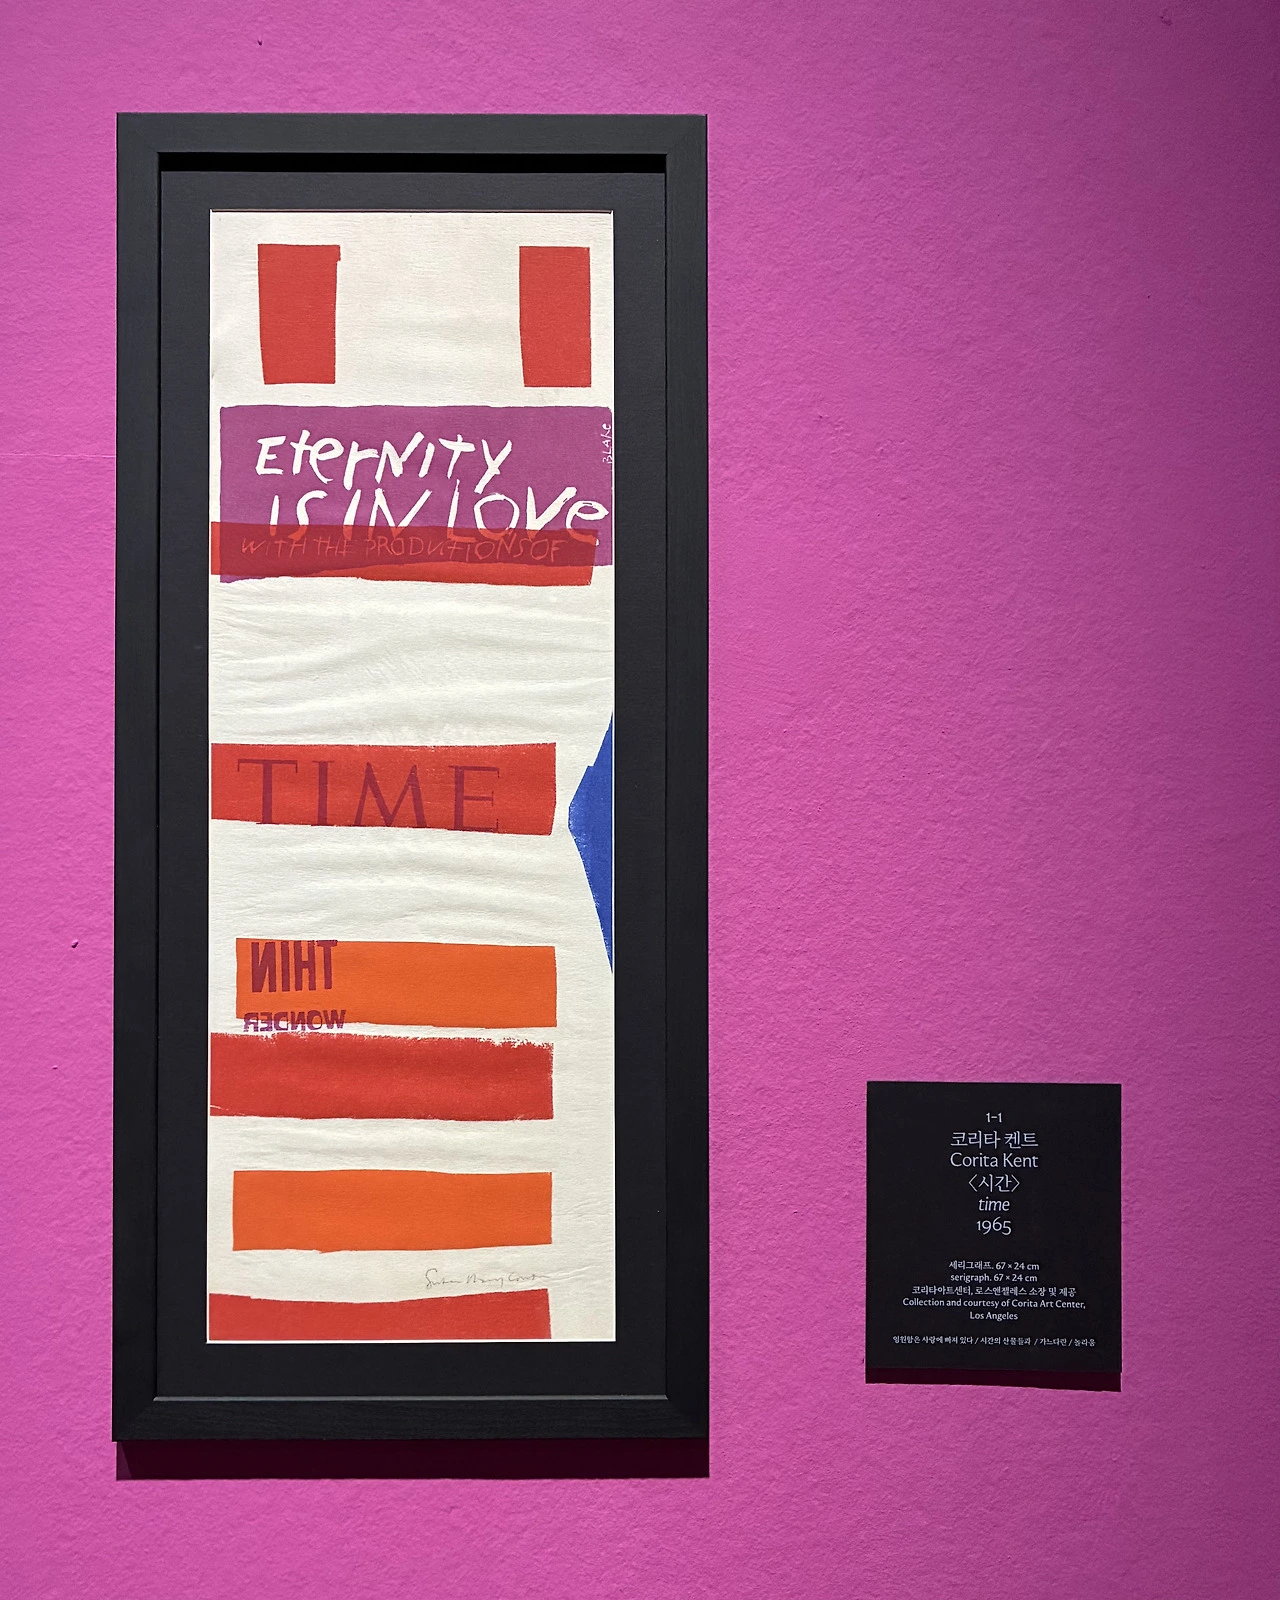 Eternity
IS IN LOVE
BLAKE
WITH THE PRODUCTIONS OF
TIME
THIN
WONDER
1–1
코리타 켄트
Corita Kent
〈시간〉
time
1965
세리그래프. 67 × 24 cm
serigraph. 67 × 24 cm
코리타아트센터, 로스앤젤레스 소장 및 제공
Collection and courtesy of Corita Art Center,
Los Angeles
영원함은 사랑에 빠져 있다 / 시간의 산물들과 / 가느다란 / 놀라움